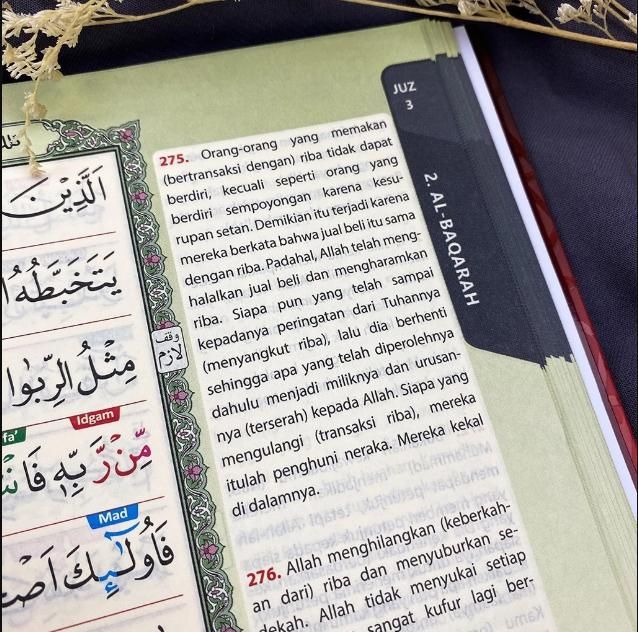 JUZ
3
2. AL-BAQARAH
275. Orang-orang yang memakan
(bertransaksi dengan) riba tidak dapat
berdiri, kecuali seperti orang yang
berdiri sempoyongan karena kesu-
rupan setan. Demikian itu terjadi karena
mereka berkata bahwa jual beli itu sama
dengan riba. Padahal, Allah telah meng-
halalkan jual beli dan mengharamkan
riba. Siapa pun yang telah sampai
kepadanya peringatan dari Tuhannya
(menyangkut riba), lalu dia berhenti
sehingga apa yang telah diperolehnya
dahulu menjadi miliknya dan urusan-
nya (terserah) kepada Allah. Siapa yang
mengulangi (transaksi riba), mereka
itulah penghuni neraka. Mereka kekal
di dalamnya.
276. Allah menghilangkan (keberkah-
an dari) riba dan menyuburkan se-
dekah. Allah tidak menyukai setiap
sangat kufur lagi ber-
اَلَّذِيْنَ
يَتَخَبَّطُهُ
وقف لازم
مِثْلُ الرِّبٰوا
Idgam
مِّنْ رَّبِّهٖ
Mad
فَاُولٰۤىِٕكَ